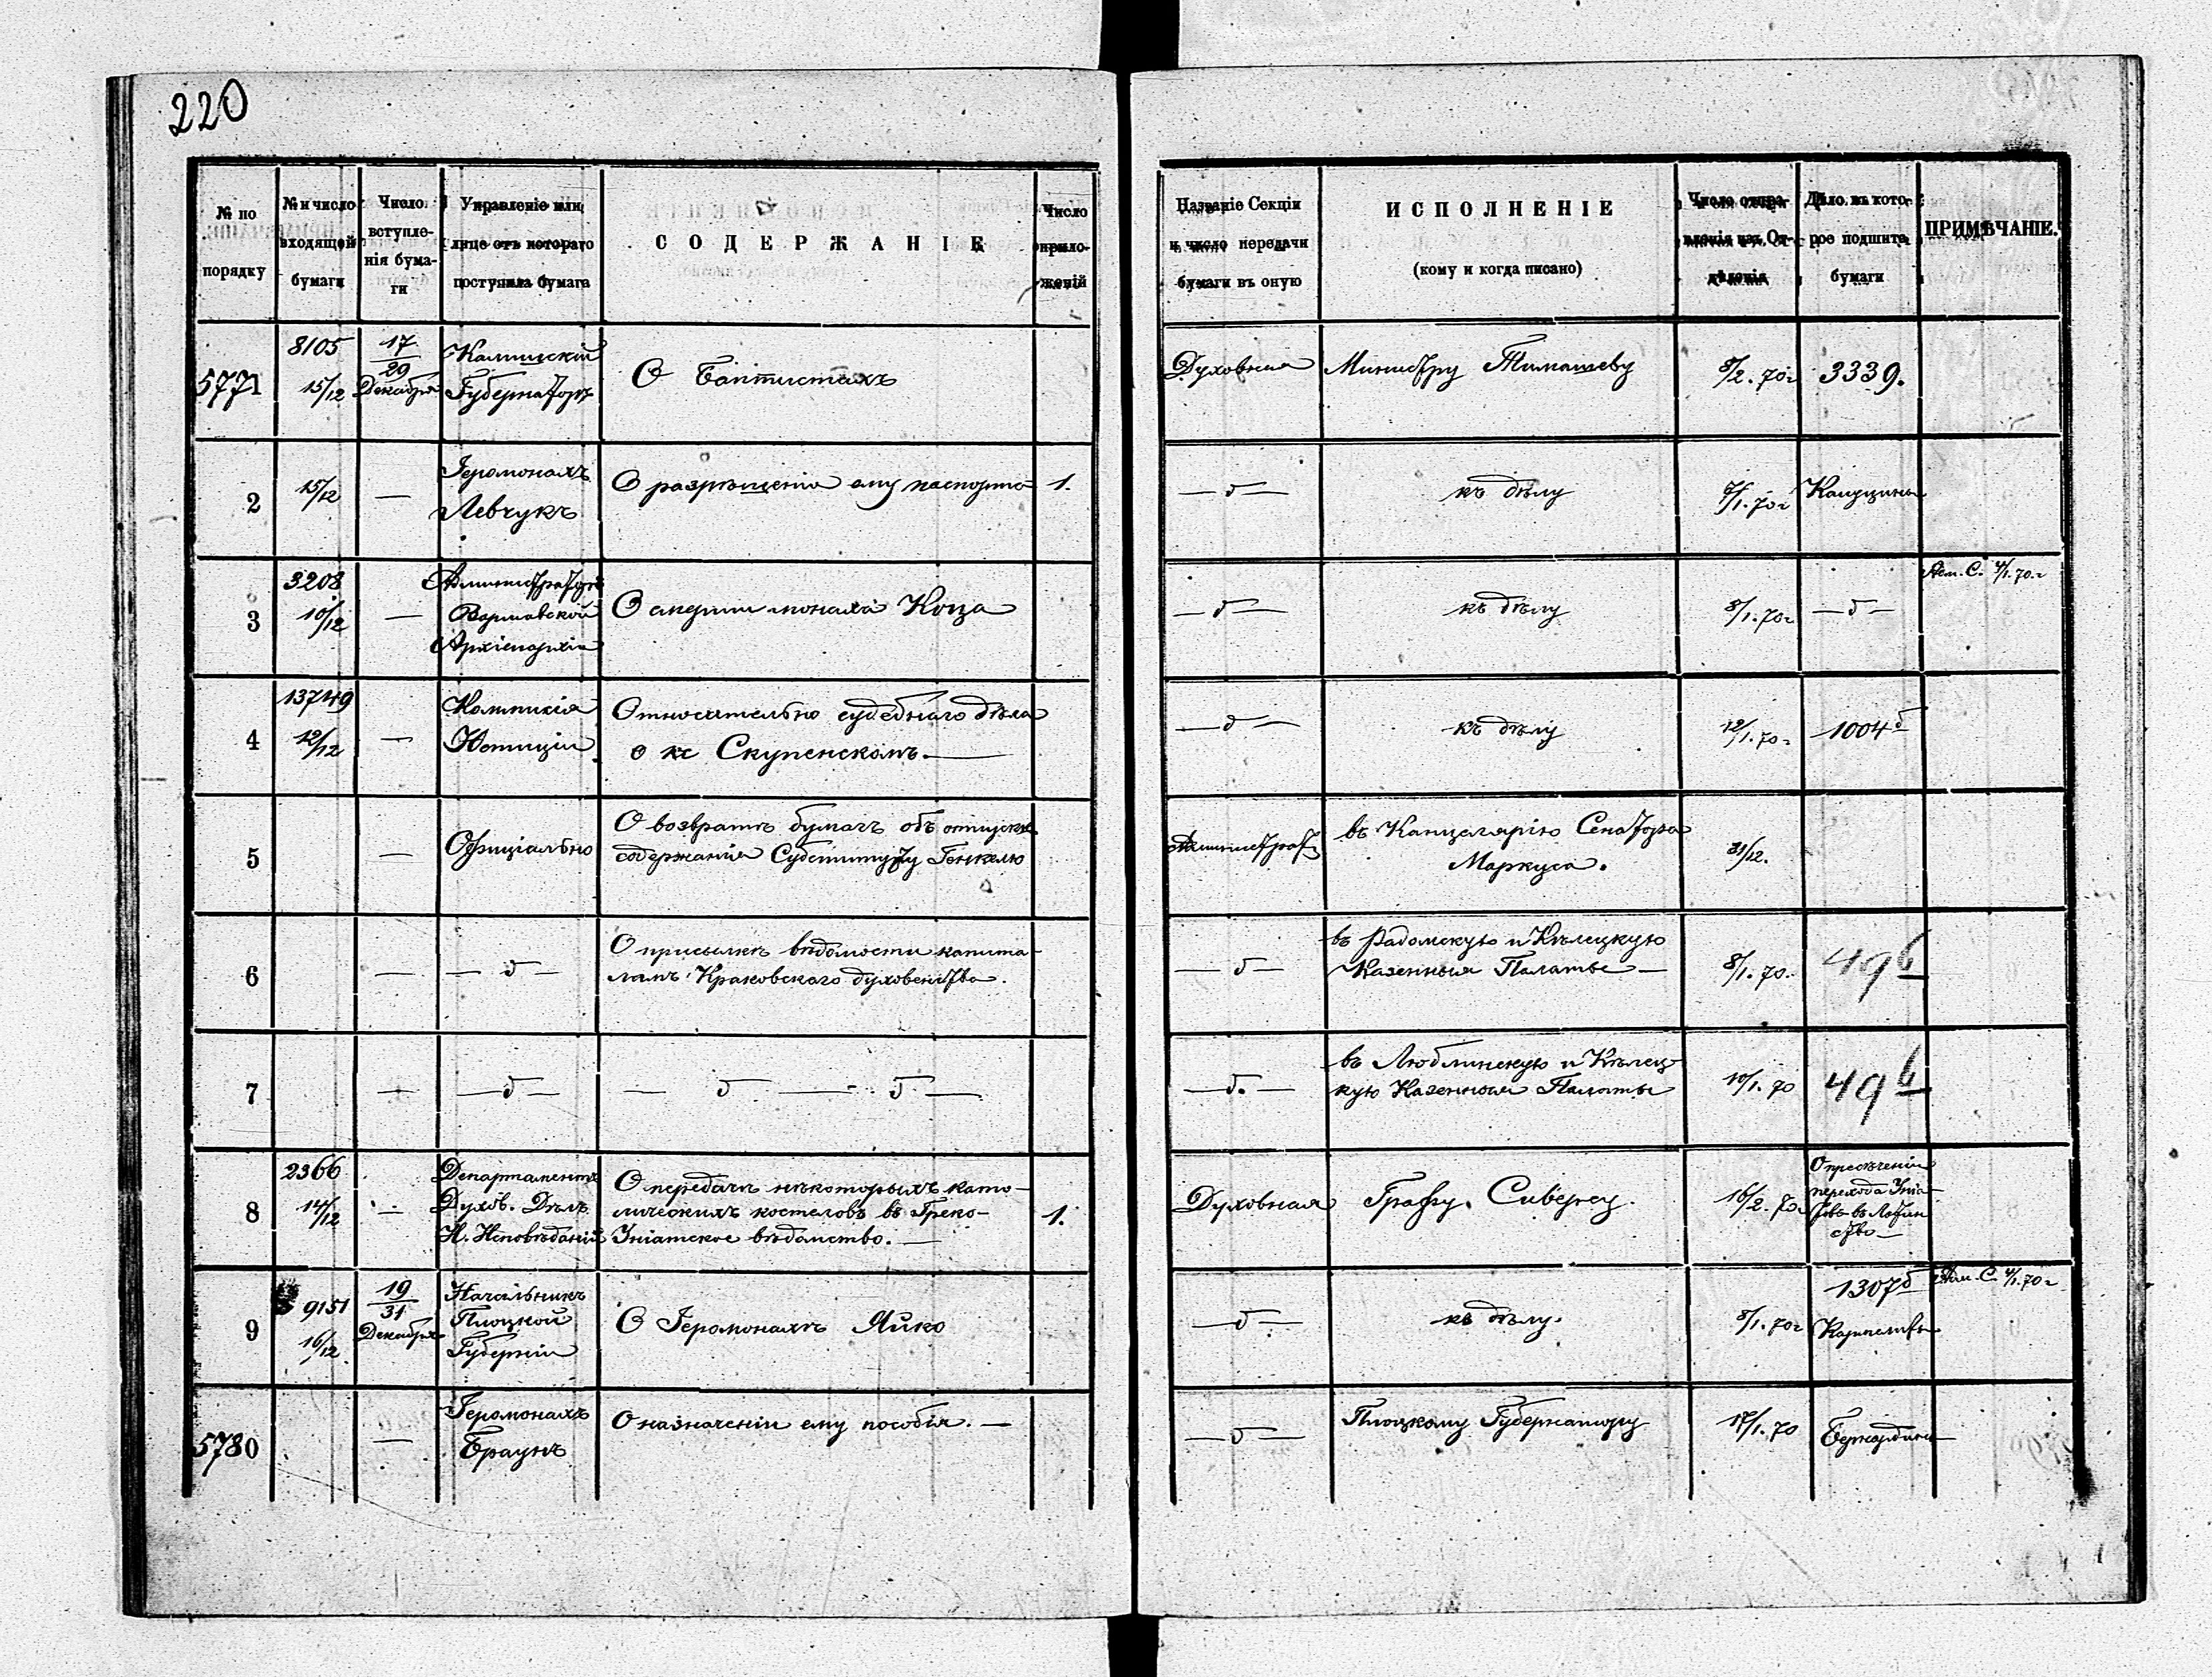 220
№ по порядку
№ и число входящей бумаги
Число вступле-нія бума-ги
Управленіе или лице отъ котораго поступила бумага
СОДЕРЖАНІЕ
Число прило-женій
Названіе Секціи и число передачи бумаги въ оную
ИСПОЛНЕНІЕ
(кому и когда писано)
Число отпра-вленія изъ От-дѣленія
Дѣло, въ кото-рое подшита бумаги
ПРИМѢЧАНІЕ.
5771
8105
15/12
17/29 Декабря
Калишскій
Губернаторъ
О Баптистахъ
Духовная
Министру Тимашеву
8/2. 70г
3339.
2
15/12
—
Іеромонахъ
Левчукъ
О разрѣшеніи ему паспорта
1.
— δ —
къ дѣлу
/1. 70г
3
3208
10/12
—
Администраторъ
Варшавской
Архіепархіи
О смерти монаха Коца
— δ —
къ дѣлу
8/1. 70г
— δ —
С. 4/1. 70г
4
13749
12/12
—
Юстиціи
Относительно судебнаго дѣла
о кс Скупенскомъ. —
— δ —
къ дѣлу
12/1. 70г
1004 δ
5
—
Офиціально
О возвратѣ бумагъ объ отпускѣ
содержанія Субституту Генкелю
Администрат
въ Канцелярію Сенатора
Маркуса.
31/12.
6
—
— δ —
О присылкѣ вѣдомости капита-
ламъ Краковскаго духовенства.
— δ —
въ Радомскую и Кѣлецкую
Казенныя Палаты —
8/1. 70.
49 б
7
—
— δ —
— δ — δ —
— δ. —
въ Люблинскую и Кѣлец-
кую Казенныя Палаты
10/1. 70
49 б
8
2366
14/12
—
Департаментъ
Духов. Дѣлъ
И. Исповѣданій
О передачѣ нѣкоторыхъ като-
лическихъ костеловъ въ Греко-
Уніатское вѣдомство. —
1.
Духовная
Графу Сиверсу.
16/2. 70г
О пресѣченіи
перехода Уніа-
товъ въ Латин
ство —
9
9151
16/12
19/31 Декабря
Начальникъ
Плоцкой
Губерніи
О Іеромонахѣ Яйко
— δ —
къ дѣлу.
8/1. 70г
1307 δ
С. 4/1. 70г
5780
—
Іеромонахъ
Браунъ
О назначеніи ему пособія. —
— δ —
Плоцкому Губернатору
17/1. 70
Бернардины